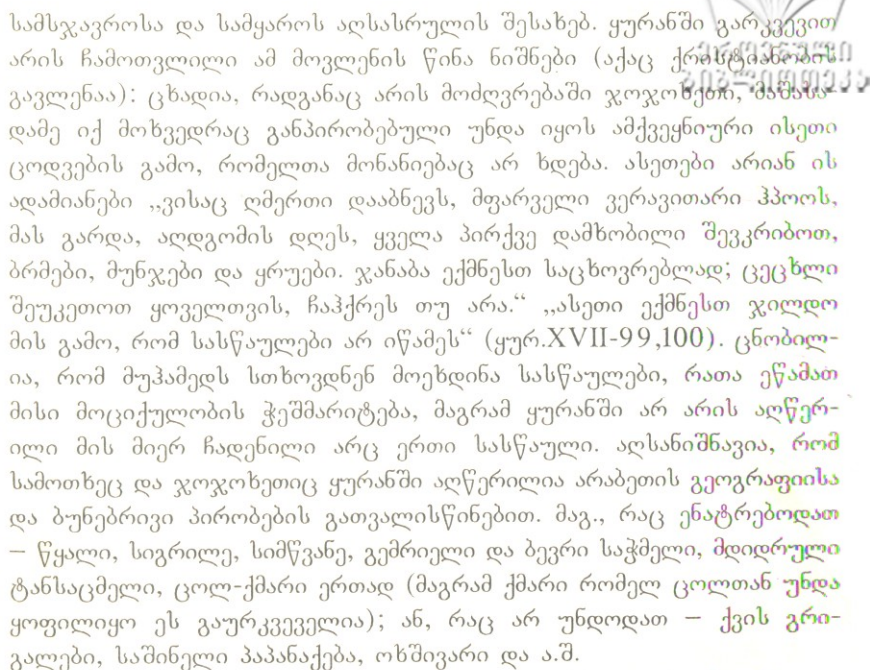 სამსჯავროსა და სამყაროს აღსასრულის შესახებ. ყურანში გარკვევით
არის ჩამოთვლილი ამ მოვლენის წინა ნიშნები (აქაც ქრისტიანობის
გავლენაა): ცხადია, რადგანაც არის მოძღვრებაში ჯოჯოხეთი, მაშასა-
დამე იქ მოხვედრაც განპირობებული უნდა იყოს ამქვეყნიური ისეთი
ცოდვების გამო, რომელთა მონანიებაც არ ხდება. ასეთები არიან ის
ადამიანები „ვისაც ღმერთი დააბნევს, მფარველი ვერავითარი ჰპოოს,
მას გარდა, აღდგომის დღეს, ყველა პირქვე დამხობილი შევკრიბოთ,
ბრმები, მუნჯები და ყრუები. ჯანაბა ექმნესთ საცხოვრებლად; ცეცხლი
შეუკეთოთ ყოველთვის, ჩაჰქრეს თუ არა.“ „ასეთი ექმნესთ ჯილდო
მის გამო, რომ სასწაულები არ იწამეს“ (ყურ.XVII-99,100). ცნობილ-
ია, რომ მუჰამედს სთხოვდნენ მოეხდინა სასწაულები, რათა ეწამათ
მისი მოციქულობის ჭეშმარიტება, მაგრამ ყურანში არ არის აღწერ-
ილი მის მიერ ჩადენილი არც ერთი სასწაული. აღსანიშნავია, რომ
სამოთხეც და ჯოჯოხეთიც ყურანში აღწერილია არაბეთის გეოგრაფიისა
და ბუნებრივი პირობების გათვალისწინებით. მაგ., რაც ენატრებოდათ
– წყალი, სიგრილე, სიმწვანე, გემრიელი და ბევრი საჭმელი, მდიდრული
ტანსაცმელი, ცოლ-ქმარი ერთად (მაგრამ ქმარი რომელ ცოლთან უნდა
ყოფილიყო ეს გაურკვეველია); ან, რაც არ უნდოდათ – ქვის გრი-
გალები, საშინელი პაპანაქება, ოხშივარი და ა.შ.
ეროვნული
ბიბლიოთეკა